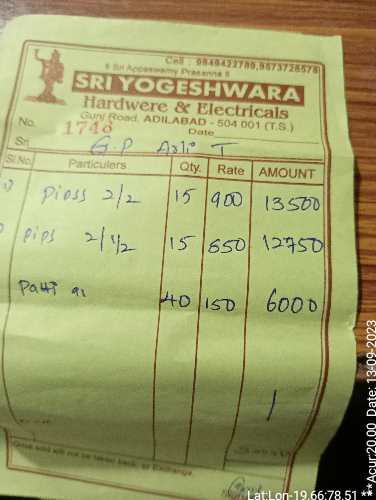 Cell : 9849422789,9573728578
॥ Sri Appaswamy Prasanna ॥
SRI YOGESHWARA
Hardwere & Electricals
Gunj Road, ADILABAD - 504 001 (T.S.)
No. 1748 Date
Sri G.P Arli T
Sl.No. Particulers Qty. Rate AMOUNT
1) pipss 2/2 15 900 13500
pips 2/1/2 15 850 12750
Patti 40 150 6000
Once sold will not be taken back or Exchange
Lat:Lon-19.66:78.51 ***Acur:20.00 Date: 13-09-2023